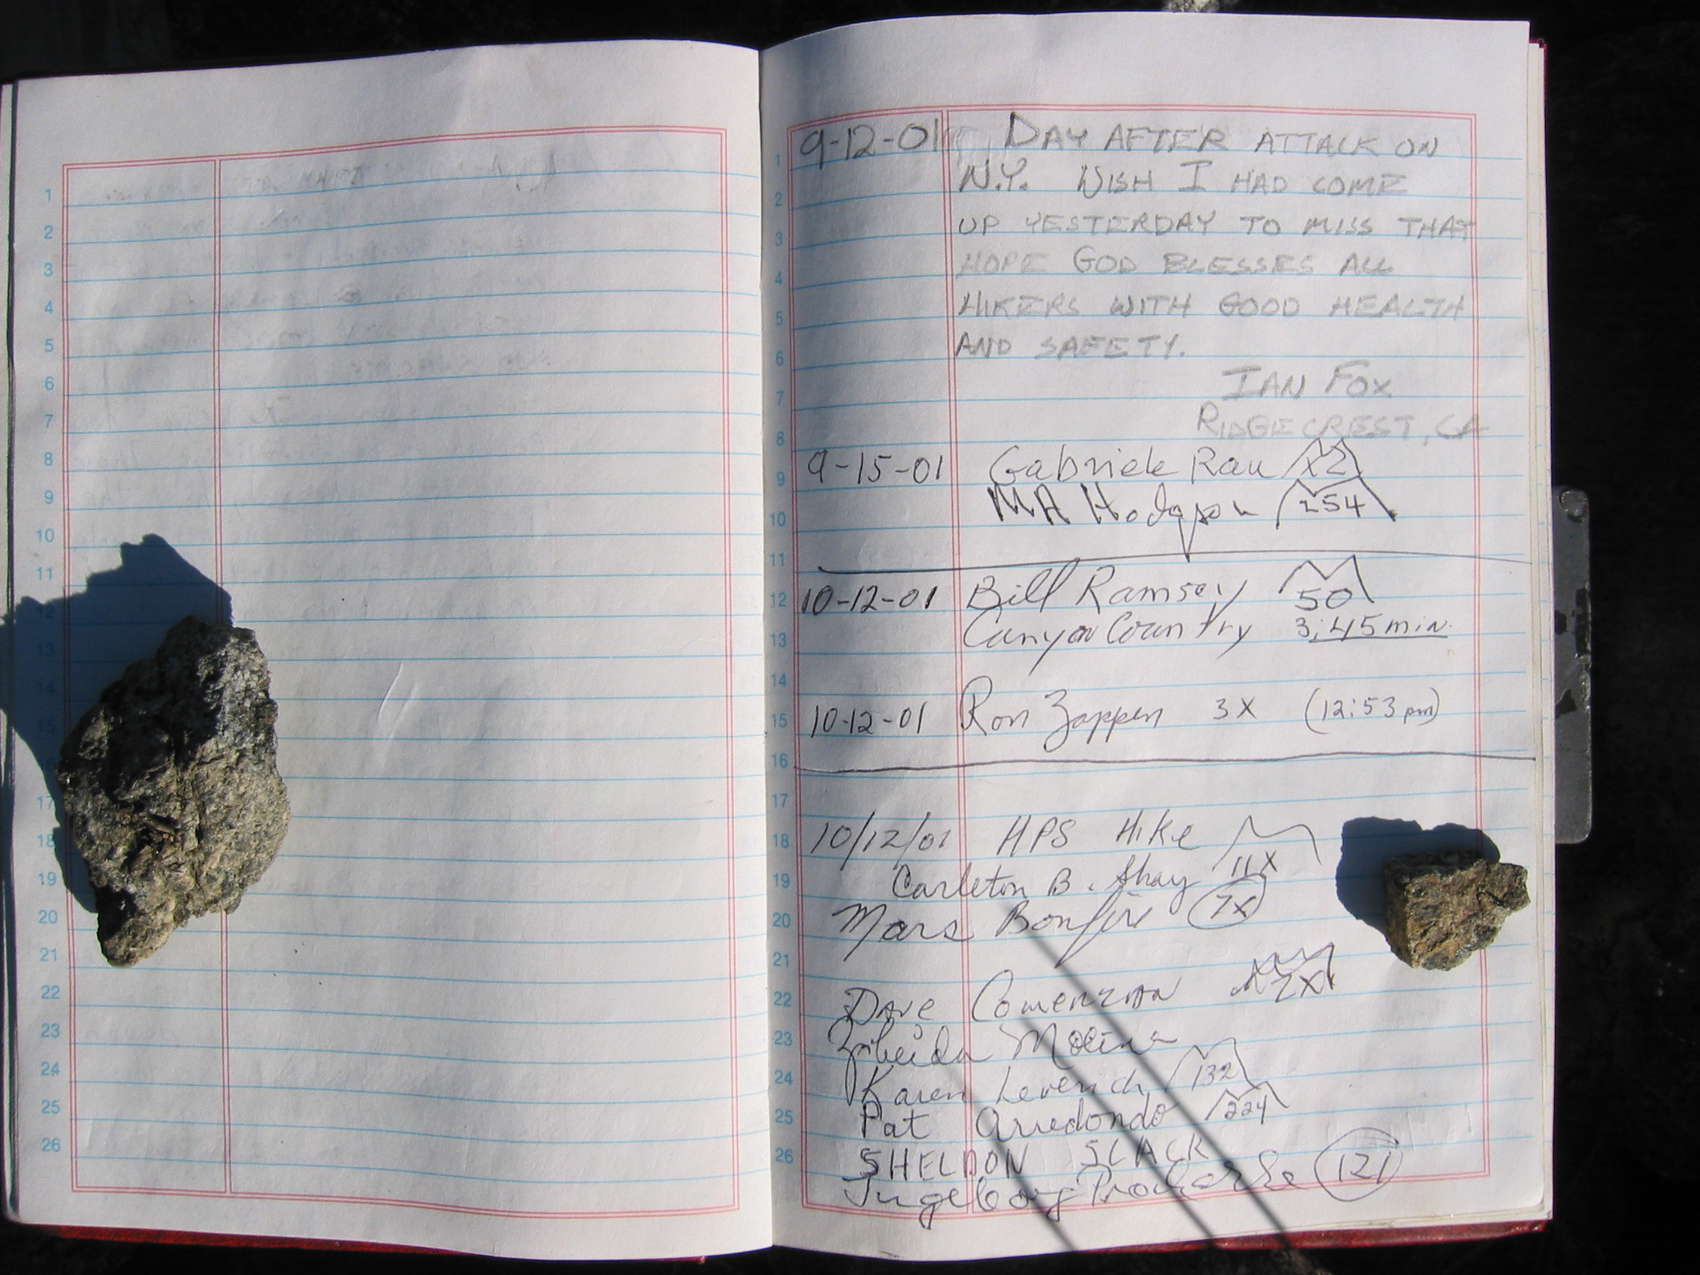 1
2
3
4
5
6
7
8
9
10
11
12
13
14
15
16
17
18
19
20
21
22
23
24
25
26
1
2
3
4
5
6
7
8
9
10
11
12
13
14
15
16
17
18
19
20
21
22
23
24
25
26
9-12-01 DAY AFTER ATTACK ON
N.Y. WISH I HAD COME
UP YESTERDAY TO MISS THAT
HOPE GOD BLESSES ALL
HIKERS WITH GOOD HEALTH
AND SAFETY.
IAN FOX
RIDGECREST, CA
9-15-01 Gabriele Rau x2
MA Hodgson 254
10-12-01 Bill Ramsey 50
Canyon Country 3:45 min.
10-12-01 Ron Zappen 3X (12:53 pm)
10/12/01 HPS Hike
Carleton B. Shay 11X
Mars Bonfire 7x
Dave Comerzan 2X
Zibeida Molina
Karen Leverich 132
Pat Arredondo 224
SHELDON SLACK
Ingeborg Prochazka 121